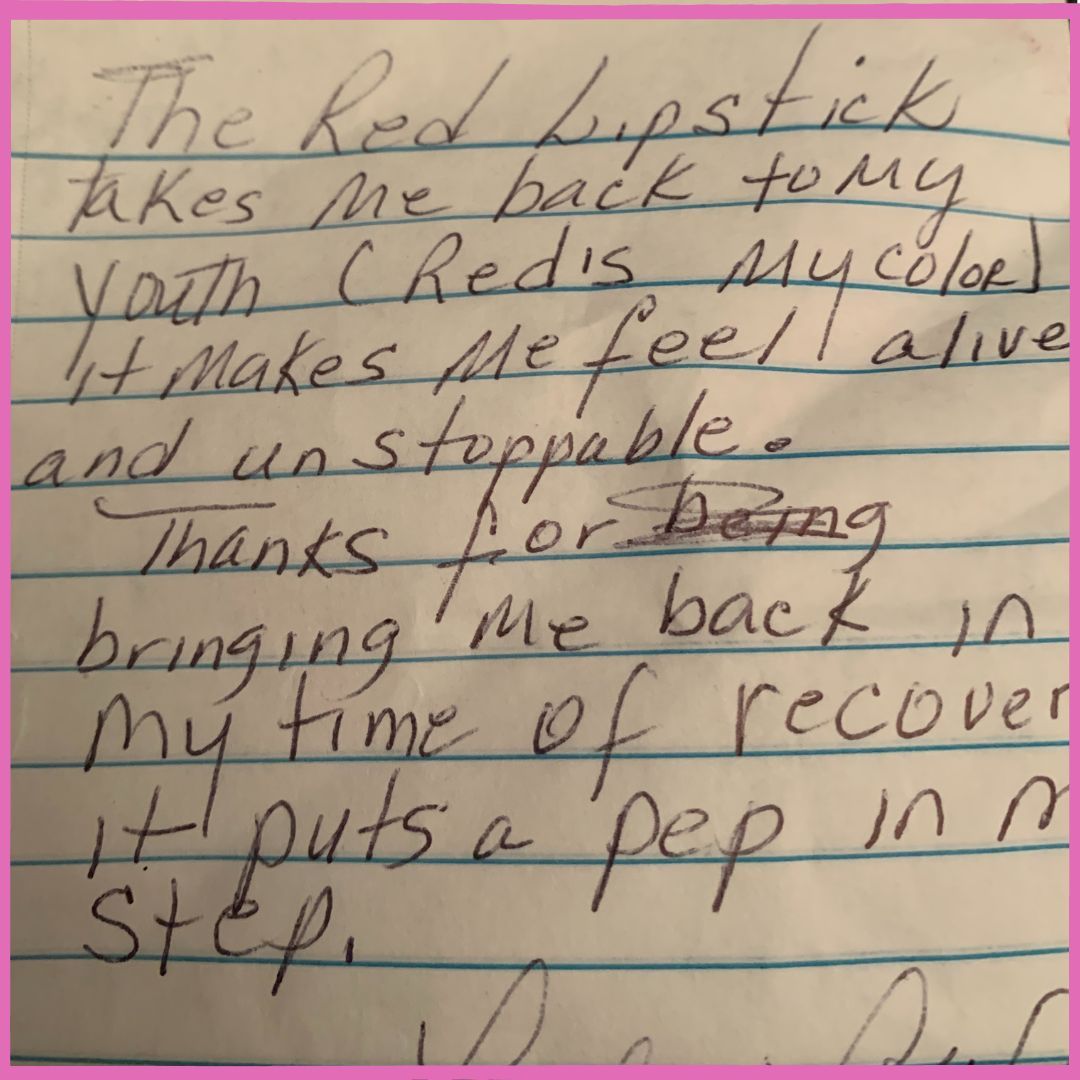 The Red Lipstick
takes Me back to My
Youth (Red is My color)
it Makes Me feel alive
and unstoppable.
Thanks for being
bringing Me back in
My time of recover
it puts a pep in
Step.